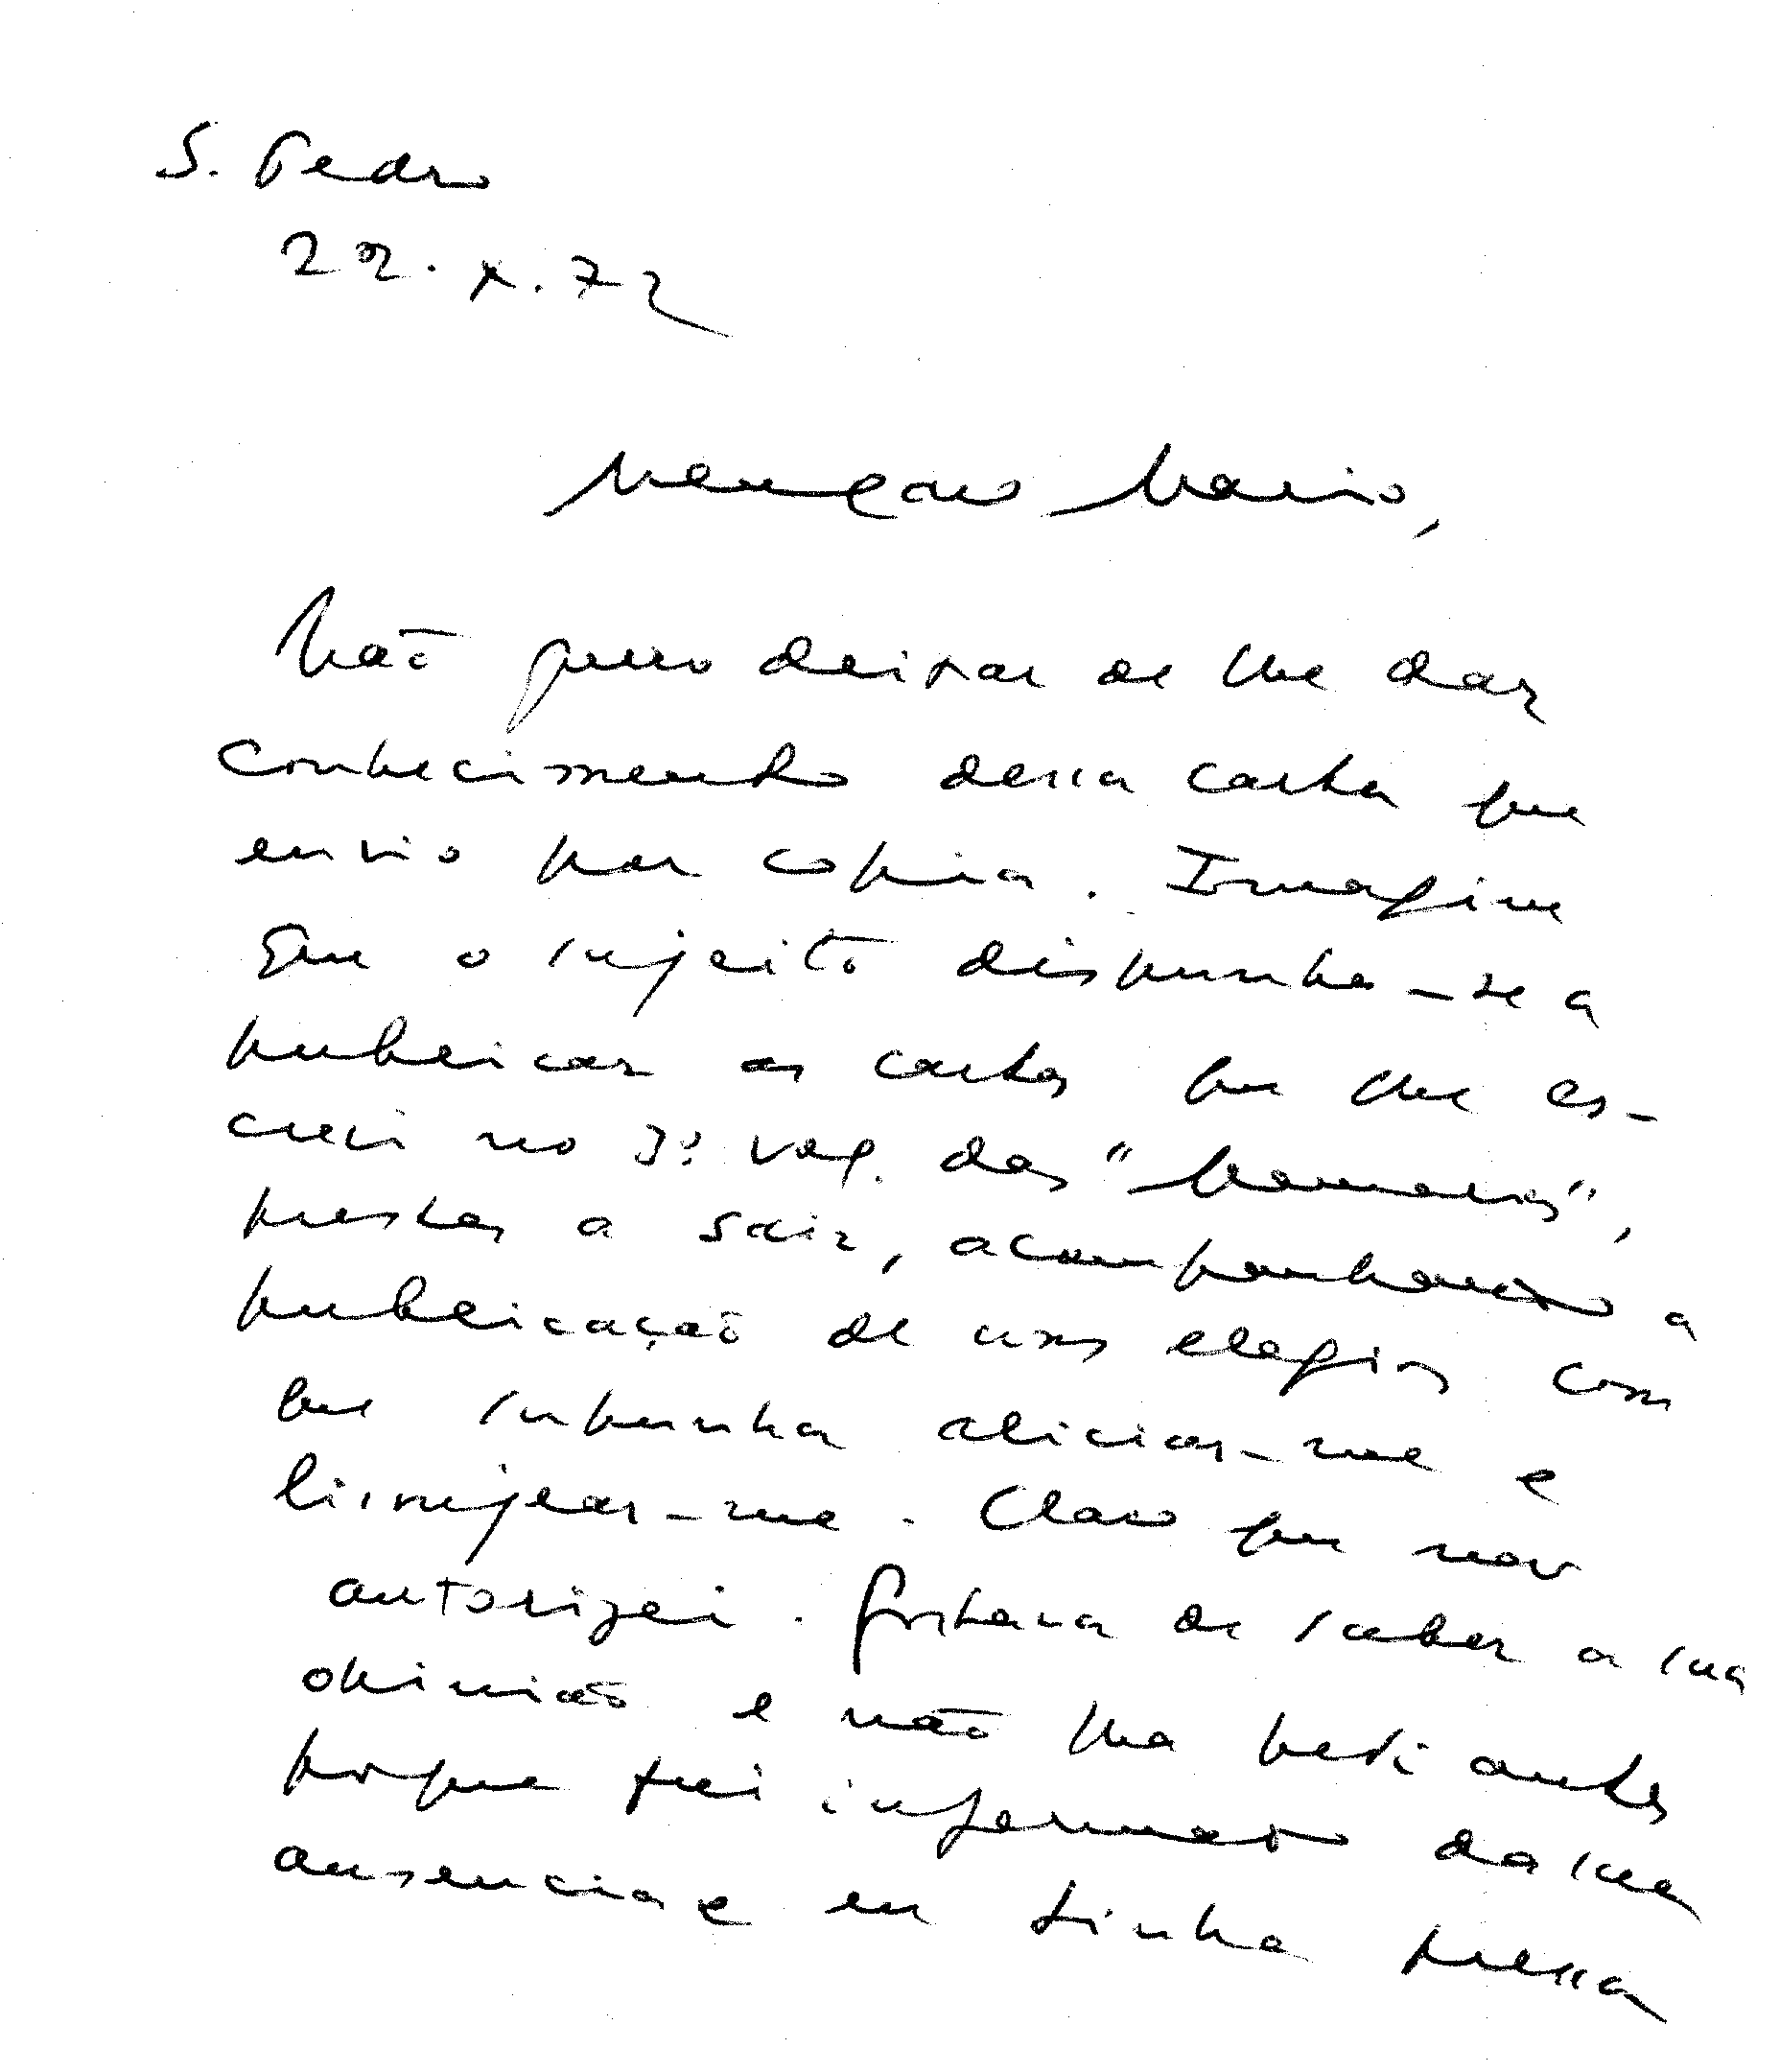 S. Pedro
22.X.72
Meu Caro Mario,
Não quero deixar de lhe dar
conhecimento dessa carta que
envio por copia. Imagine
que o sujeito dispunha-se a
publicar as cartas que lhe es-
crevi no 3º vol. das "Memorias",
prestes a sair, acompanhando a
publicação de uns elogios com
que supunha aliciar-me e
lisonjear-me. Claro que não
autorizei. Gostava de saber a sua
opinião e não lha pedi antes
porque fui informado da sua
ausencia e eu tinha pressa